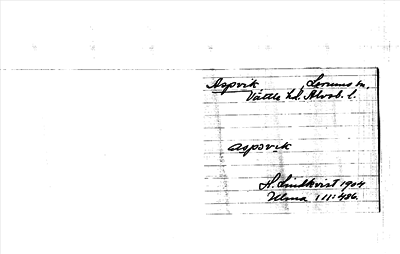 Aspvik Lerums sn.
Vättle hd. Älvsb. l.
aspsvik
H. Lindkvist 1904
Ulma 111:486.